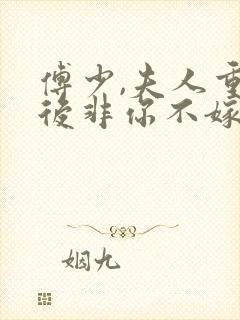 傅少,夫人重
後非你不嫁
姻九